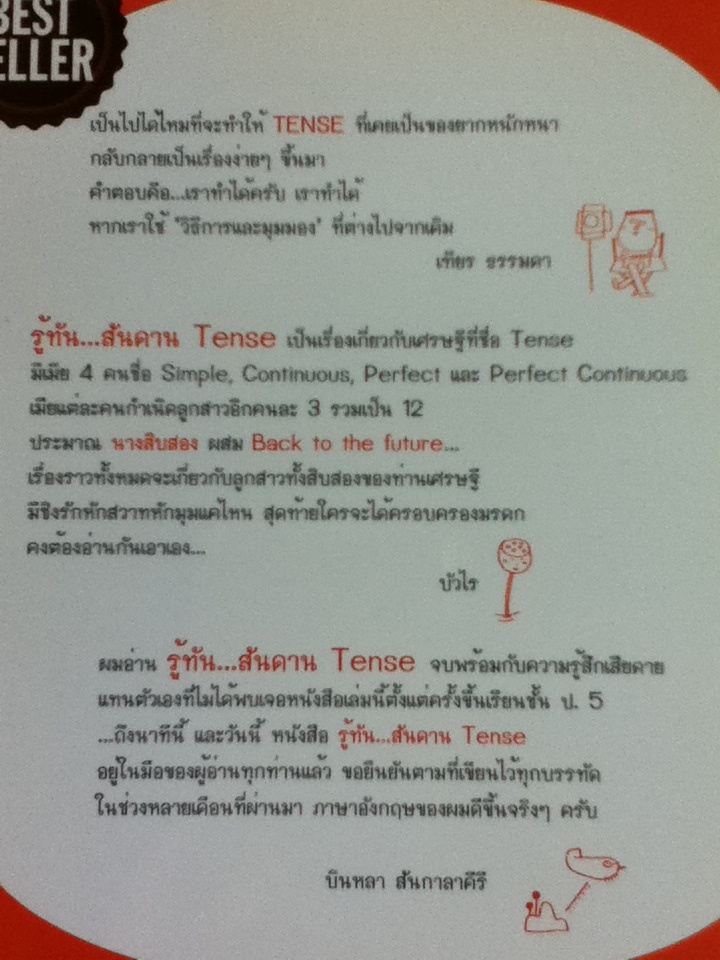 BEST
ELLER
เป็นไปได้ไหมที่จะทำให้ TENSE ที่เคยเป็นของยากหนักหนา
กลับกลายเป็นเรื่องง่ายๆ ขึ้นมา
คำตอบคือ...เราทำได้ครับ เราทำได้
หากเราใช้ 'วิธีการและมุมมอง' ที่ต่างไปจากเดิม
เทียร ธรรมดา
รู้ทัน...สันดาน Tense เป็นเรื่องเกี่ยวกับเศรษฐีที่ชื่อ Tense
มีเมีย 4 คนชื่อ Simple, Continuous, Perfect และ Perfect Continuous
เมียแต่ละคนกำเนิดลูกสาวอีกคนละ 3 รวมเป็น 12
ประมาณ นางสิบสอง ผสม Back to the future...
เรื่องราวทั้งหมดจะเกี่ยวกับลูกสาวทั้งสิบสองของท่านเศรษฐี
มีชิงรักหักสวาทหักมุมแค่ไหน สุดท้ายใครจะได้ครอบครองมรดก
คงต้องอ่านกันเอาเอง...
บัวไร
ผมอ่าน รู้ทัน...สันดาน Tense จบพร้อมกับความรู้สึกเสียดาย
แทนตัวเองที่ไม่ได้พบเจอหนังสือเล่มนี้ตั้งแต่ครั้งขึ้นเรียนชั้น ป. 5
...ถึงนาทีนี้ และวันนี้ หนังสือ รู้ทัน...สันดาน Tense
อยู่ในมือของผู้อ่านทุกท่านแล้ว ขอยืนยันตามที่เขียนไว้ทุกบรรทัด
ในช่วงหลายเดือนที่ผ่านมา ภาษาอังกฤษของผมดีขึ้นจริงๆ ครับ
บินหลา สันกาลาคีรี